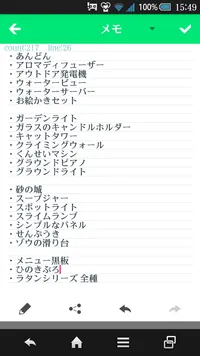 15:49
メモ
count:217 line:26
・あんどん
・アロマディフューザー
・アウトドア発電機
・ウォータービュー
・ウォーターサーバー
・お絵かきセット
・ガーデンライト
・ガラスのキャンドルホルダー
・キャットタワー
・クライミングウォール
・くんせいマシン
・グラウンドピアノ
・グラウンドライト
・砂の城
・スープジャー
・スポットライト
・スライムランプ
・シンプルなパネル
・せんぷうき
・ゾウの滑り台
・メニュー黒板
・ひのきぶろ
・ラタンシリーズ 全種